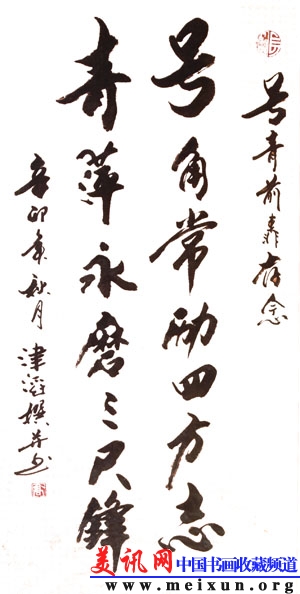 号青前辈存念
号角常励四方志
青萍永磨三尺锋
辛卯年秋月 津滔撰并书
美讯网 中国书画收藏频道
www.meixun.org